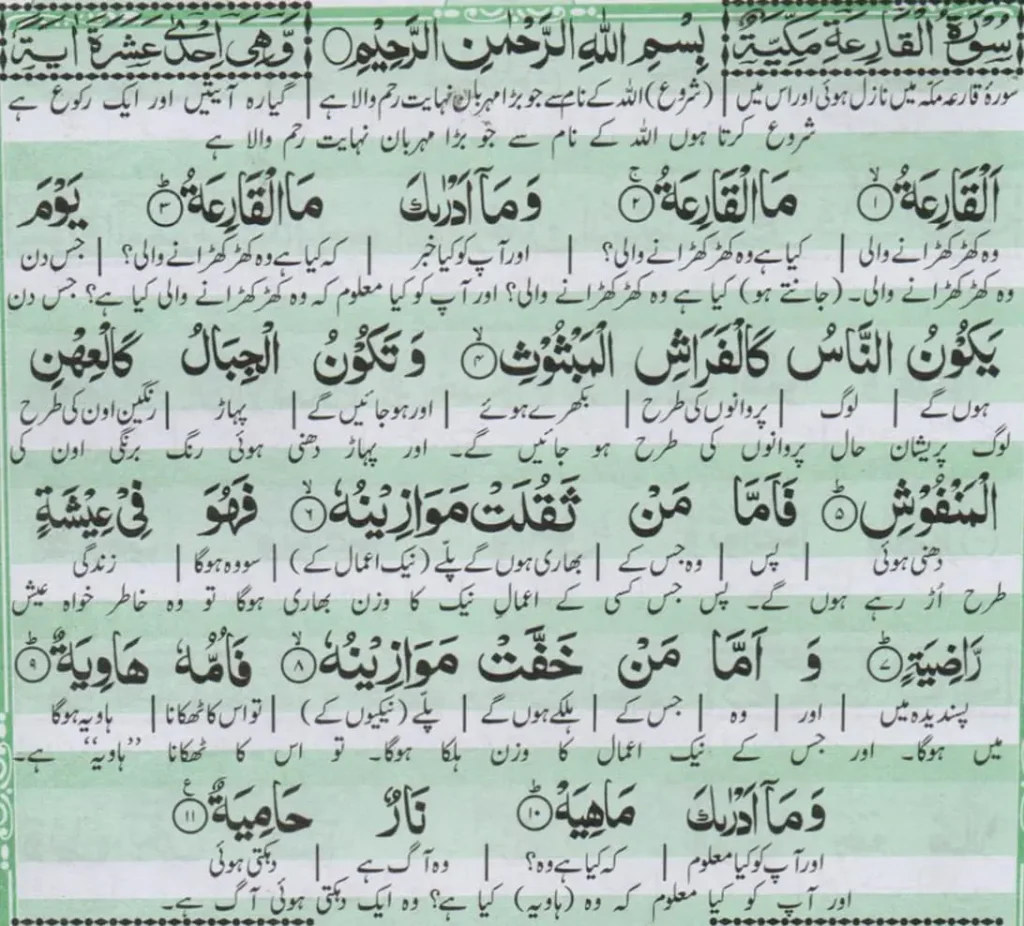 سُوْرَةُ الْقَارِعَةِ مَكِّيَّةٌ بِسْمِ اللّٰهِ الرَّحْمٰنِ الرَّحِيْمِ وَّهِيَ اِحْدٰى عَشَرَةَ اٰيَةً
سورۂ قارعہ مکہ میں نازل ہوئی اور اس میں | (شروع) اللہ کے نام سے جو بڑا مہربان نہایت رحم والا ہے | گیارہ آیتیں اور ایک رکوع ہے
شروع کرتا ہوں اللہ کے نام سے جو بڑا مہربان نہایت رحم والا ہے
اَلْقَارِعَةُ ۙ﴿۱﴾ مَا الْقَارِعَةُ ۚ﴿۲﴾ وَمَاۤ اَدْرٰىكَ مَا الْقَارِعَةُ ؕ﴿۳﴾ يَوْمَ
وہ کھڑکھڑانے والی | کیا ہے وہ کھڑکھڑانے والی؟ | اور آپ کو کیا خبر | کہ کیا ہے وہ کھڑکھڑانے والی؟ | جس دن
وہ کھڑکھڑانے والی۔ (جانتے ہو) کیا ہے وہ کھڑکھڑانے والی؟ اور آپ کو کیا معلوم کہ وہ کھڑکھڑانے والی کیا ہے؟ جس دن
يَكُوْنُ النَّاسُ كَالْفَرَاشِ الْمَبْثُوْثِ ۙ﴿۴﴾ وَتَكُوْنُ الْجِبَالُ كَالْعِهْنِ
ہوں گے | لوگ | پروانوں کی طرح | بکھرے ہوئے | اور ہو جائیں گے | پہاڑ | رنگین اون کی طرح
لوگ پریشان حال پروانوں کی طرح ہو جائیں گے۔ اور پہاڑ دھنی ہوئی رنگ برنگی اون کی
الْمَنْفُوْشِ ؕ﴿۵﴾ فَاَمَّا مَنْ ثَقُلَتْ مَوَازِيْنُهٗ ۙ﴿۶﴾ فَهُوَ فِيْ عِيْشَةٍ
دھنی ہوئی | پس | وہ جس کے | بھاری ہوں گے پلے (نیک اعمال کے) | سو وہ ہوگا | زندگی
طرح اُڑ رہے ہوں گے۔ پس جس کسی کے اعمالِ نیک کا وزن بھاری ہوگا تو وہ خاطر خواہ عیش
رَّاضِيَةٍ ؕ﴿۷﴾ وَ اَمَّا مَنْ خَفَّتْ مَوَازِيْنُهٗ ۙ﴿۸﴾ فَاُمُّهٗ هَاوِيَةٌ ؕ﴿۹﴾
پسندیدہ میں | اور | وہ | جس کے | ہلکے ہوں گے | پلے (نیکیوں کے) | تو اس کا ٹھکانا | ہاویہ ہوگا
میں ہوگا۔ اور جس کے نیک اعمال کا وزن ہلکا ہوگا۔ تو اس کا ٹھکانا ”ہاویہ“ ہے۔
وَمَاۤ اَدْرٰىكَ مَاهِيَهْ ؕ﴿۱۰﴾ نَارٌ حَامِيَةٌ ﴿۱۱﴾ ع
اور آپ کو کیا معلوم | کہ کیا ہے وہ؟ | وہ آگ ہے | دہکتی ہوئی
اور آپ کو کیا معلوم کہ وہ (ہاویہ) کیا ہے؟ وہ ایک دہکتی ہوئی آگ ہے۔